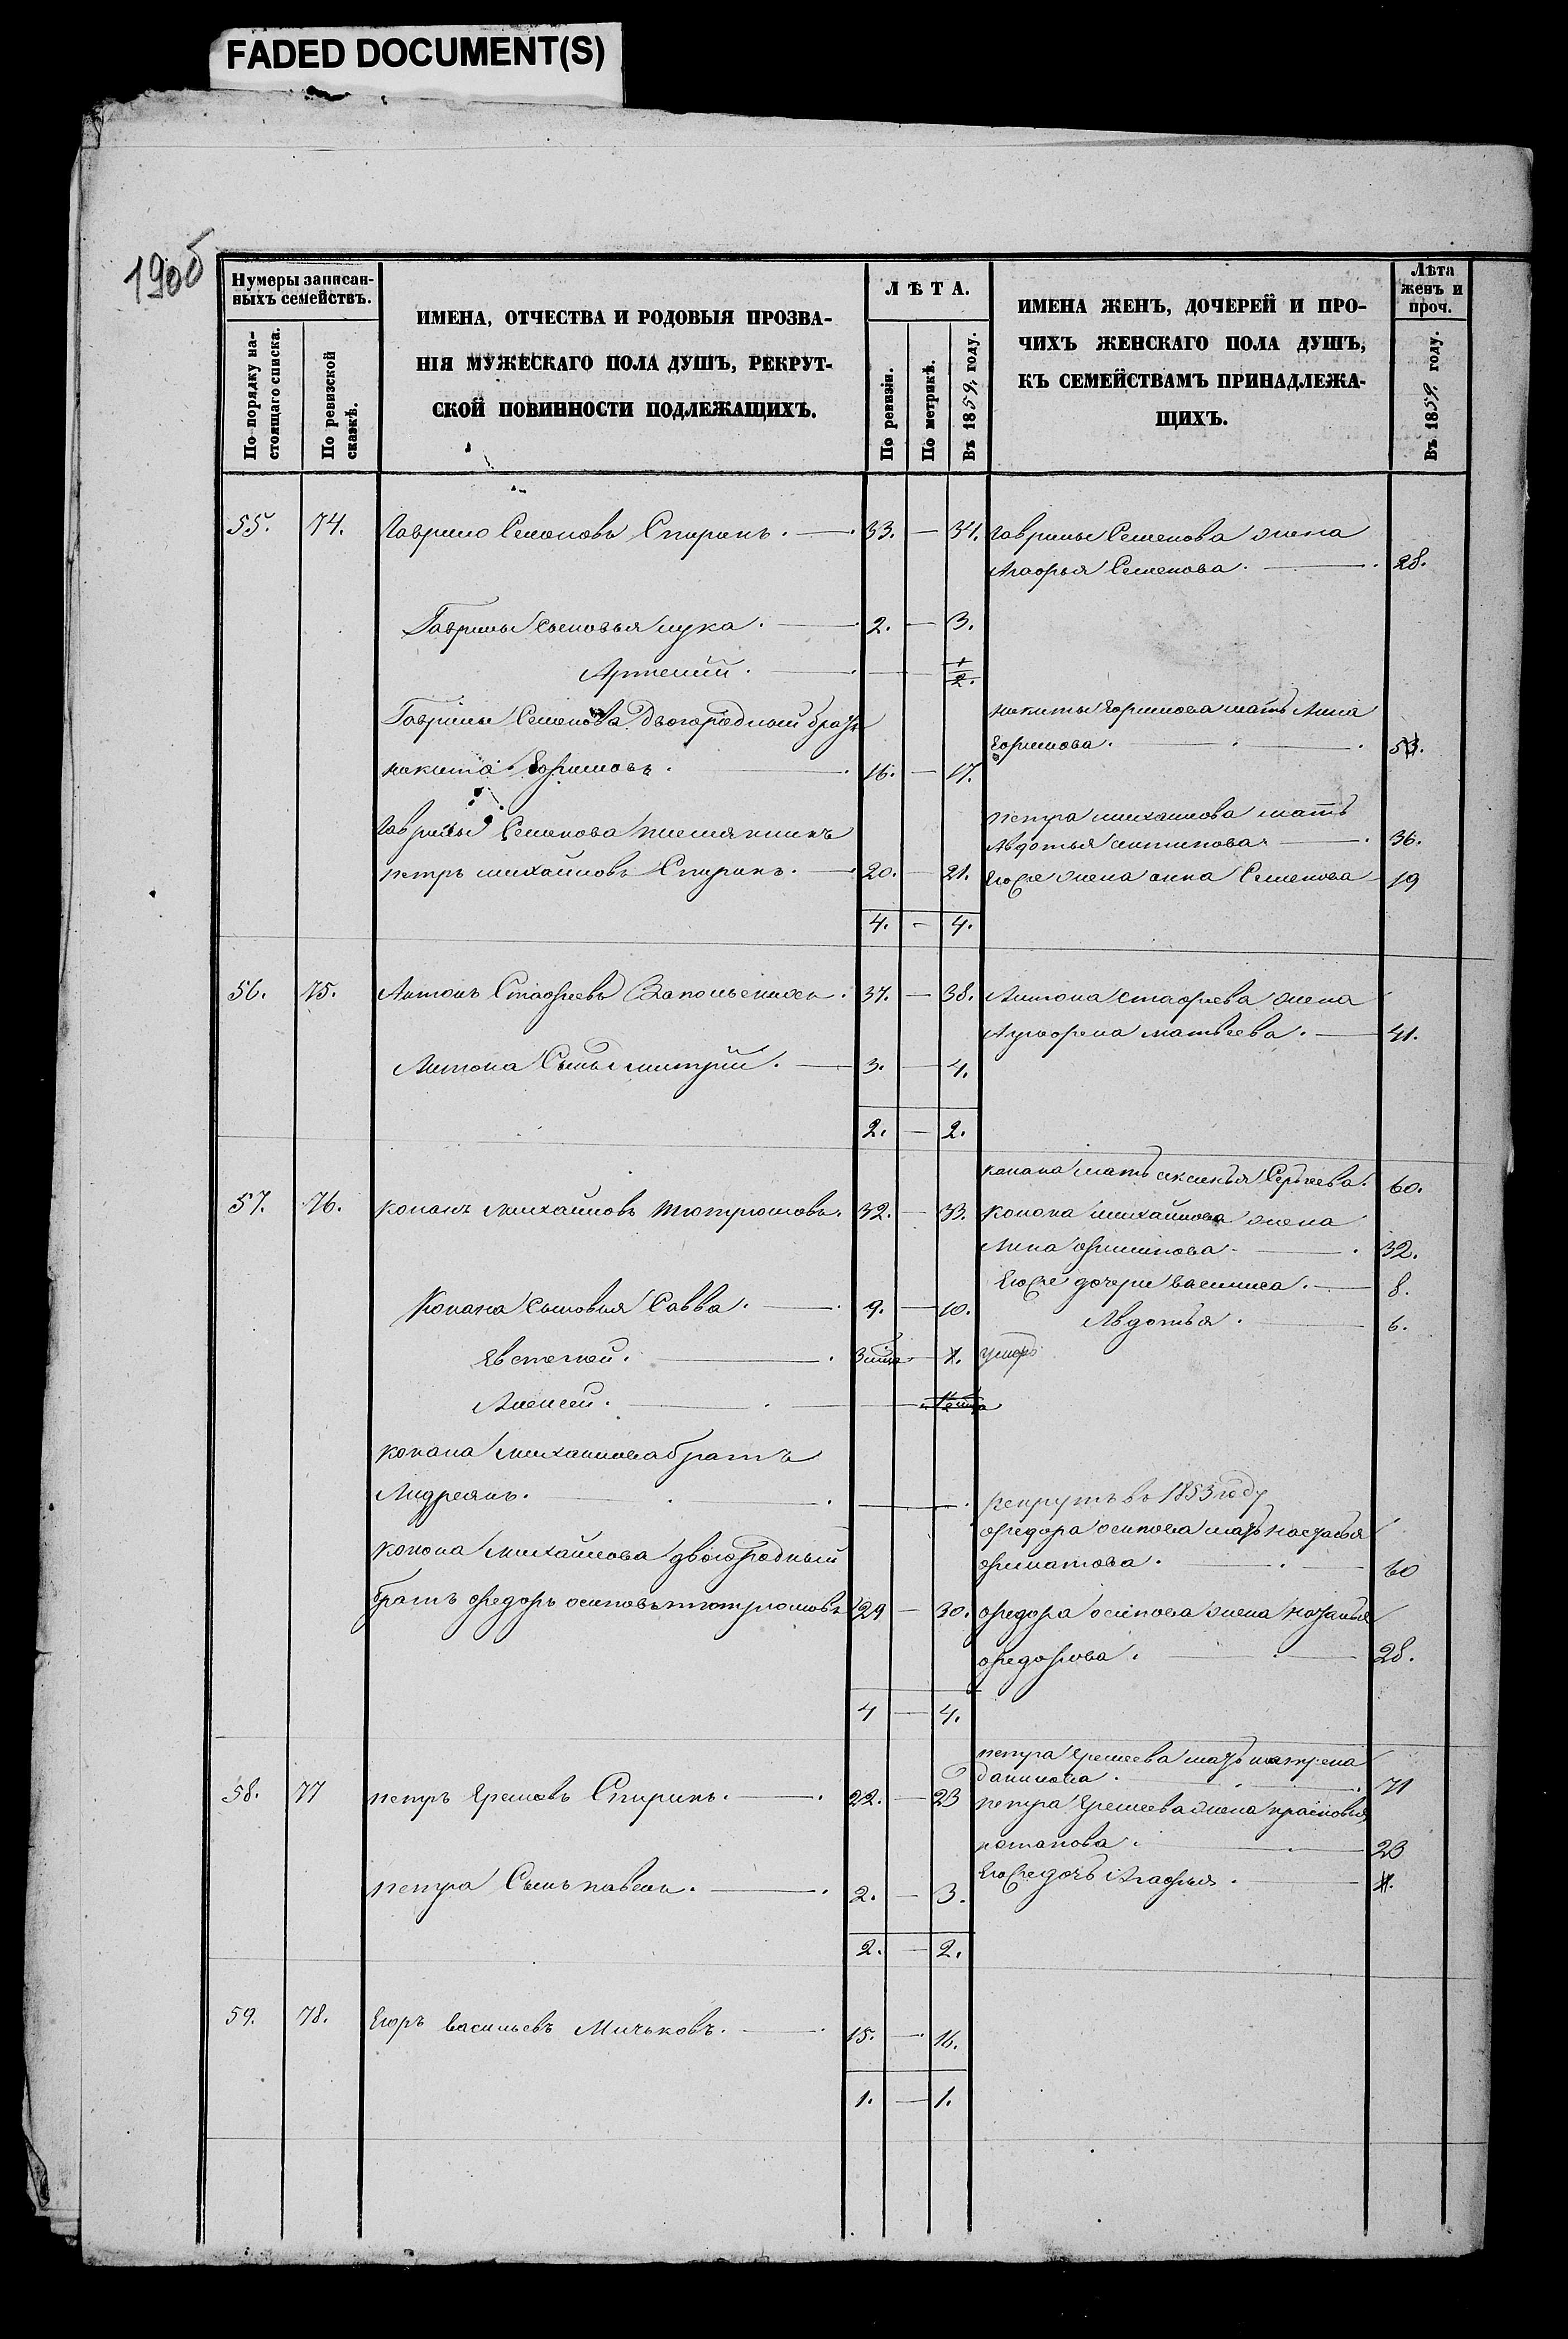 FADED DOCUMENT(S)
190об
Нумеры записан-
ныхъ семействъ.
По порядку на-
стоящаго списка.
По ревизской
сказкѣ.
ИМЕНА, ОТЧЕСТВА И РОДОВЫЯ ПРОЗВА-
НІЯ МУЖЕСКАГО ПОЛА ДУШЪ, РЕКРУТ-
СКОЙ ПОВИННОСТИ ПОДЛЕЖАЩИХЪ.
ЛѢТА.
По ревизіи.
По метрикѣ.
Въ 1859, году.
ИМЕНА ЖЕНЪ, ДОЧЕРЕЙ И ПРО-
ЧИХЪ ЖЕНСКАГО ПОЛА ДУШЪ,
КЪ СЕМЕЙСТВАМЪ ПРИНАДЛЕЖА-
ЩИХЪ.
Лѣта
женъ и
проч.
Въ 1859, году.
55. 74. Гаврило Семеновъ Спиринъ. — 33. — 34. Гаврилы Семенова жена
Агафья Семенова. — 28.
Гаврилы сыновья лука. — 2. — 3.
Артемий. — 1/2.
Гаврилы Семенова Двогородный братъ
никиты Ефимова мать Анна
Ефимова. — 53.
никита Ефимовъ. — 16. — 17.
Гаврилы Семенова племянникъ
петра михайлова мать
Авдотья антипова — 36.
петръ михайловъ Спиринъ. — 20. — 21. Его же жена анна Семенова 19
4. — 4.
56. 75. Антонъ Стафеевъ 37. — 38. Антона стафеева жена
Аграфена матвеева. — 41.
Антона Сынъ дмитрий. — 3. — 4.
2. — 2.
конана мать аксинья Сергеева. 60.
57. 76. конанъ михайловъ тютрюмовъ. 32. — 33. конона михайлова жена
Анна филипова. — 32.
Его же дочери василиса. — 8.
Конана сыновья Савва. — 9. — 10.
Авдотья. — 6.
Евстегней. — умеръ
Алексей. —
конана михайлова братъ
Андреянъ. — рекрутъ въ 1853 году
федора осипова мать настасья
филатова. — 60
конона михайлова двогородный
братъ федоръ осиповъ тютрюмовъ 29 — 30. федора осипова жена
федорова. — 28.
4 — 4.
петра Еремеева мать матрена
данилова. — 71
58. 77 петръ Еремеевъ Спиринъ. — 22. — 23 петра Еремеева жена прасковья
потапова. — 23
петра Сынъ павелъ. — 2. — 3.
Его же дочь Агафья. — 1.
2. — 2.
59. 78. Егоръ васильевъ Мичьковъ. — 15. — 16.
1. — 1.